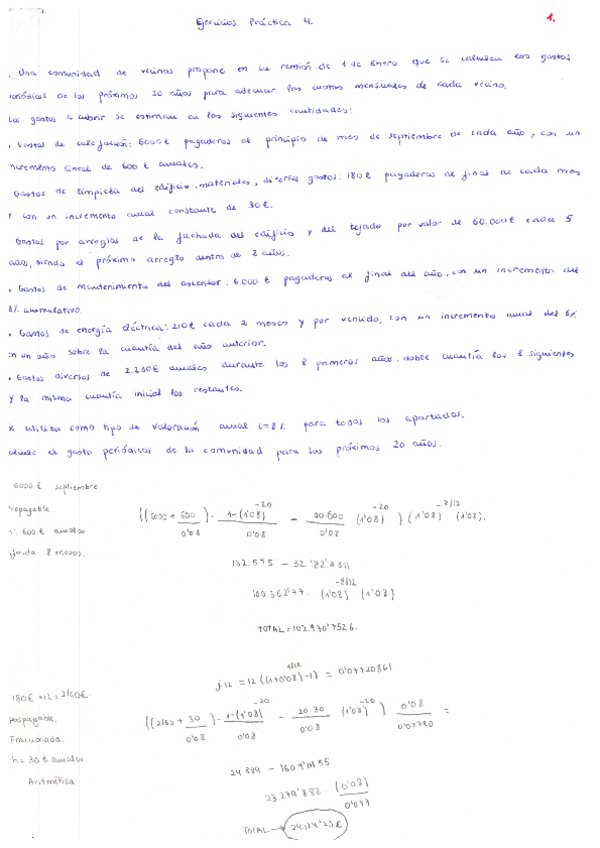 Ejercicios Práctica 4.
1.
. Una comunidad de vecinos propone en su reunión de 1 de Enero que se calculen los gastos
periódicos de los próximos 20 años para adecuar las cuotas mensuales de cada vecino.
Los gastos a cubrir se estiman en las siguientes cantidades:
. Gastos de calefacción: 6000€ pagaderos al principio de mes de septiembre de cada año, con un
incremento lineal de 600 € anuales.
Gastos de limpieza del edificio, materiales, diversos gastos: 180€ pagaderos al final de cada mes
y con un incremento anual constante de 30€.
Gastos por arreglos de la fachada del edificio y del tejado por valor de 60.000€ cada 5
años, siendo el próximo arreglo dentro de 2 años.
. Gastos de mantenimiento del ascensor: 6.000 € pagaderos al final del año, con un incremento del
8% acumulativo.
. Gastos de energía eléctrica: 210€ cada 2 meses y por vencido, con un incremento anual del 6%
en un año sobre la cuantía del año anterior.
. Gastos diversos de 2.250€ anuales durante los 8 primeros años, doble cuantía los 8 siguientes
y la misma cuantía inicial los restantes.
se utiliza como tipo de valoración anual i=8% para todos los apartados.
el gasto periódicos de la comunidad para los próximos 20 años.
6000 € septiembre
prepagable
600€ anuales
8 meses.
((6000 + 600/0'08) · 1-(1'08)^-20/0'08 - 20·600/0'08 (1'08)^-20) (1'08)^-8/12 (1'08).
132.545 - 32.182'4311
(1'08)^-8/12 (1'08)
TOTAL = 102.970'7526.
j12 = 12 ((1+0'08)^1/12 -1) = 0'07720861
180€ ×12 = 2160€.
Pospagable.
Fraccionada.
h = 30 € anuales
Aritmética
((2160 + 30/0'08) · 1-(1'08)^-20/0'08 - 20·30/0'08 (1'08)^-20) 0'08/0'07720 =
24.889 - 1609'1155
23.279'888 · (0'08)/0'077
TOTAL → 24.124'23€